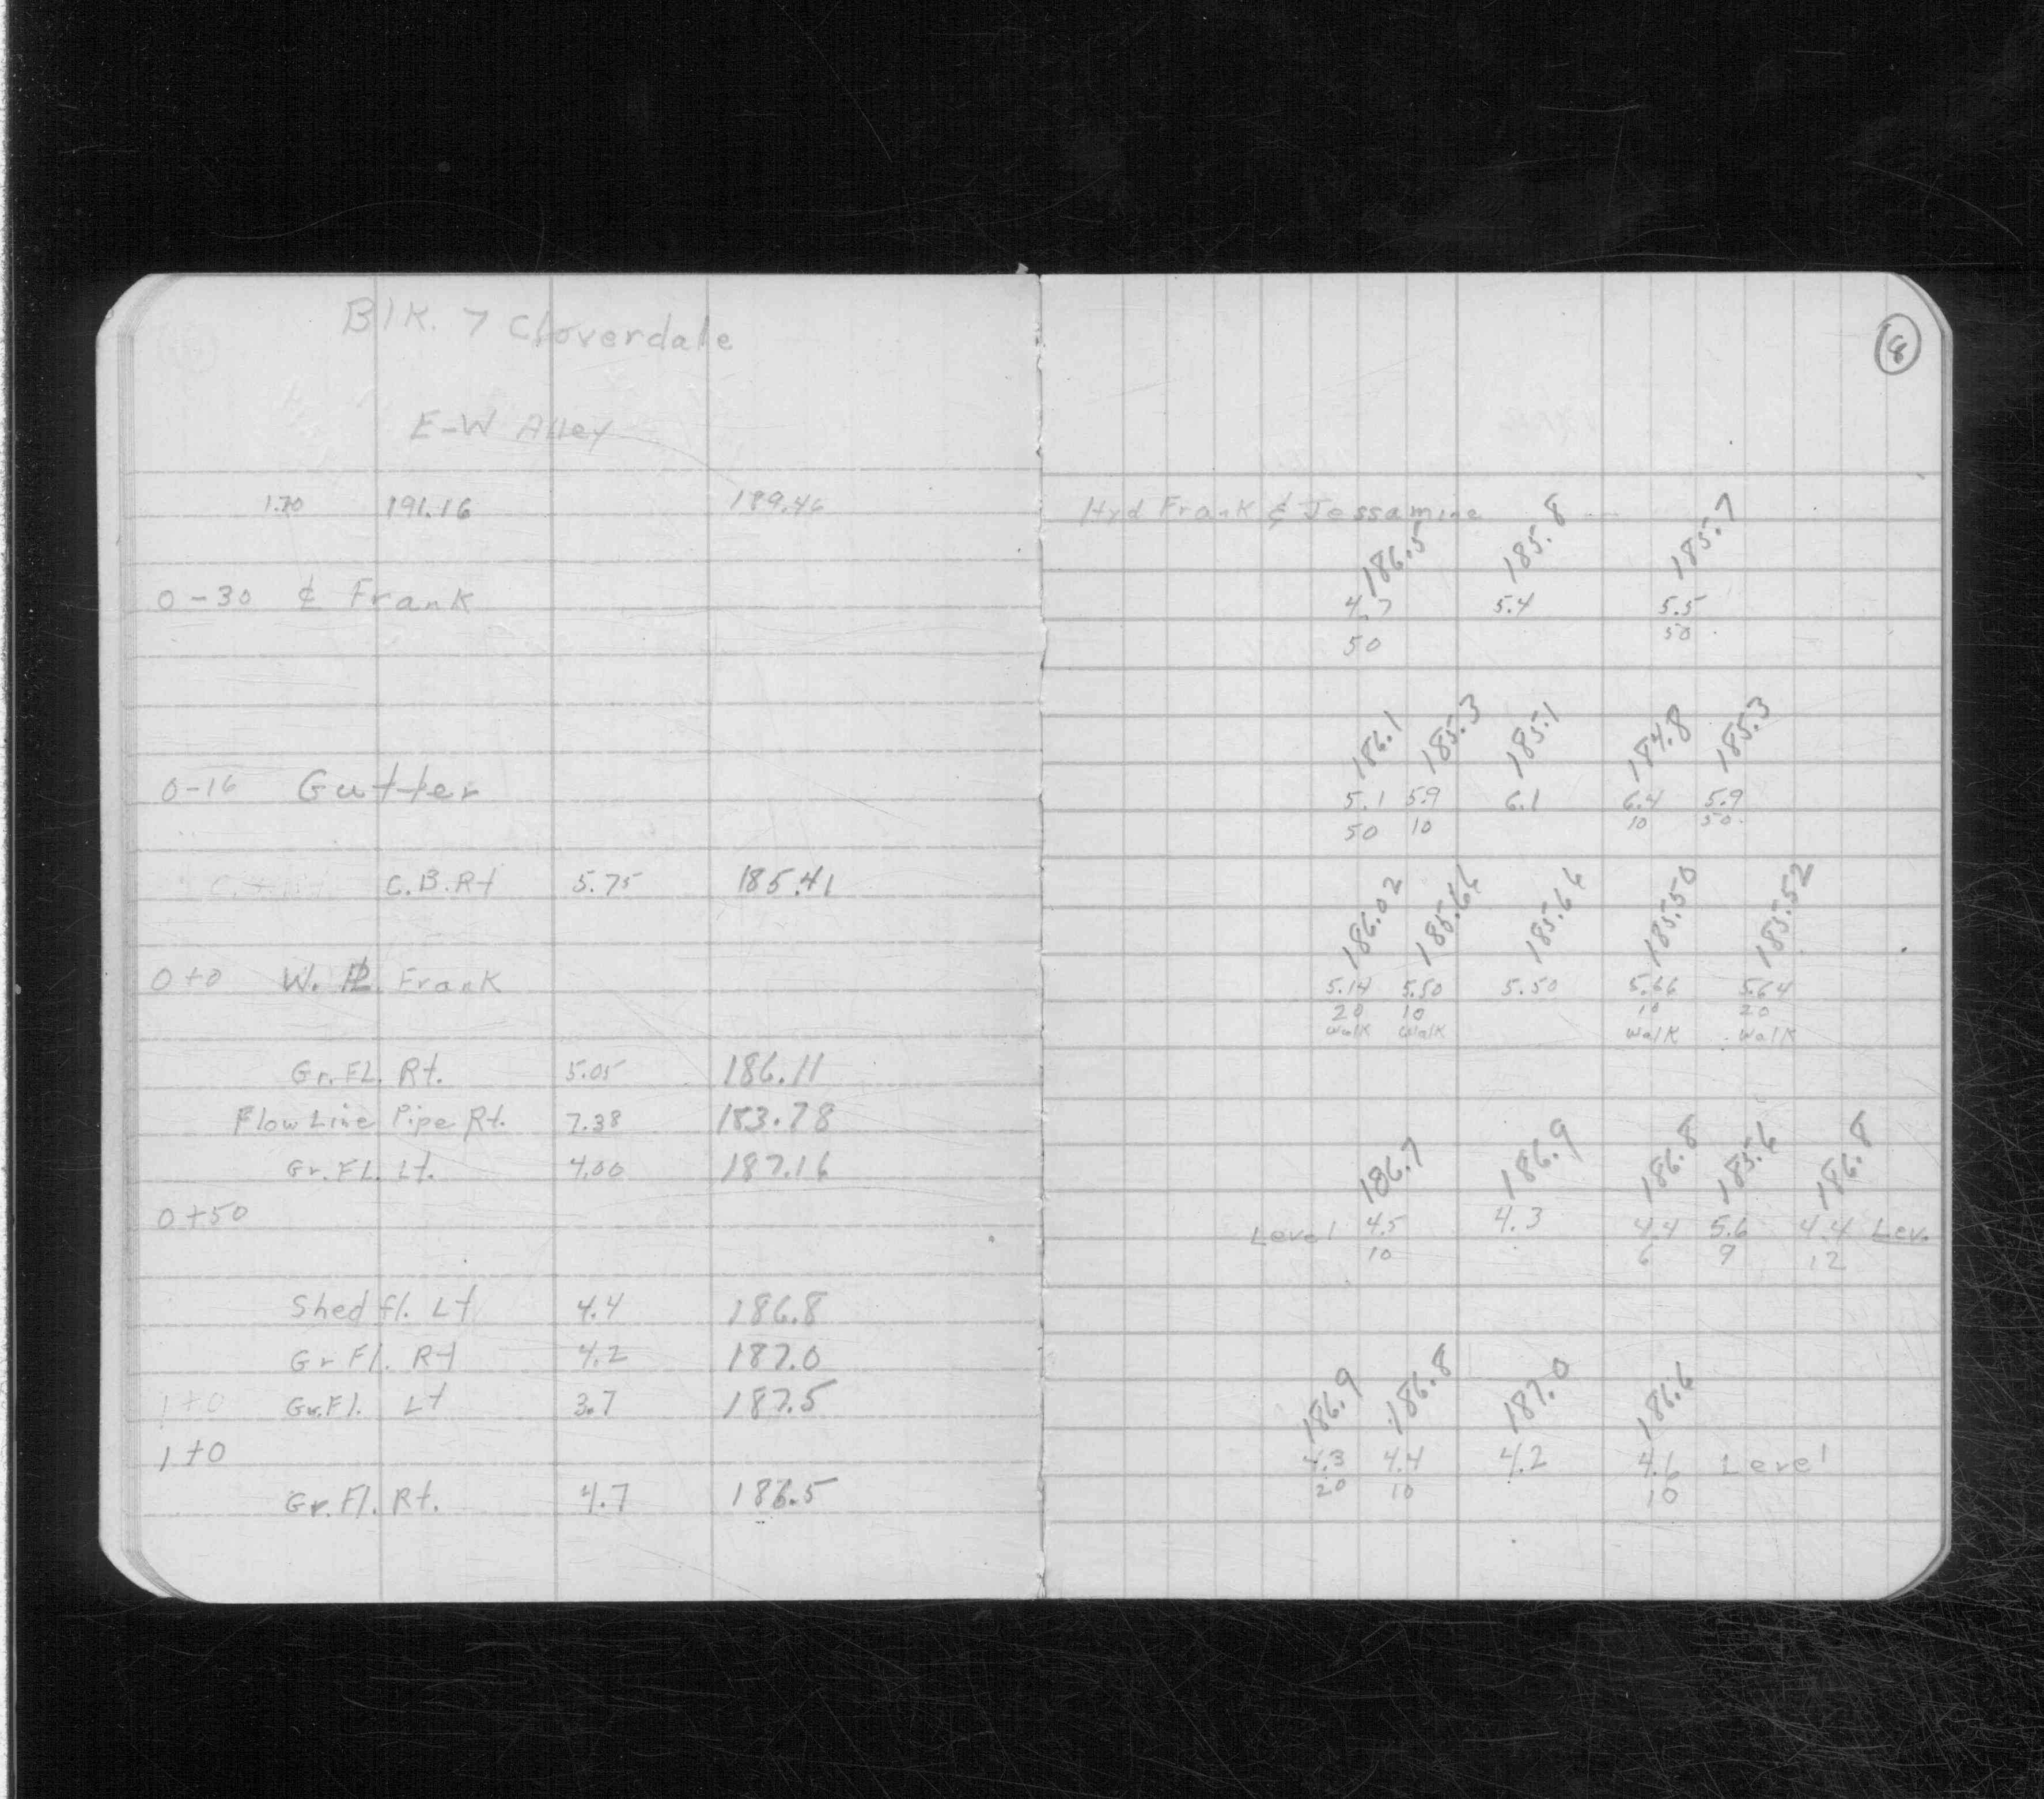 Blk. 7 Cloverdale
E-W Alley
1.70 191.16 189.46
0-30 ₵ Frank
0-16 Gutter
C.B. Rt 5.75 185.41
0+0 W. PL Frank
Gr. Fl. Rt. 5.05 186.11
Flow Line Pipe Rt. 7.38 183.78
Gr. Fl. Lt. 4.00 187.16
0+50
Shed fl. Lt 4.4 186.8
Gr Fl. Rt 4.2 187.0
1+0 Gr. Fl. Lt 3.7 187.5
1+0
Gr. Fl. Rt. 4.7 186.5
8
Hyd Frank & Jessamine
186.5 185.8 185.7
4.7 5.4 5.5
50 50
186.1 185.3 185.1 184.8 185.3
5.1 5.9 6.1 6.4 5.9
50 10 10 50
186.02 185.66 185.66 185.50 185.52
5.14 5.50 5.50 5.66 5.64
20 10 10 20
Walk Walk Walk Walk
186.7 186.9 186.8 185.6 186.8
Level 4.5 4.3 4.4 5.6 4.4 Lev.
10 6 9 12
186.9 186.8 187.0 186.6
4.3 4.4 4.2 4.6 Level
20 10 10